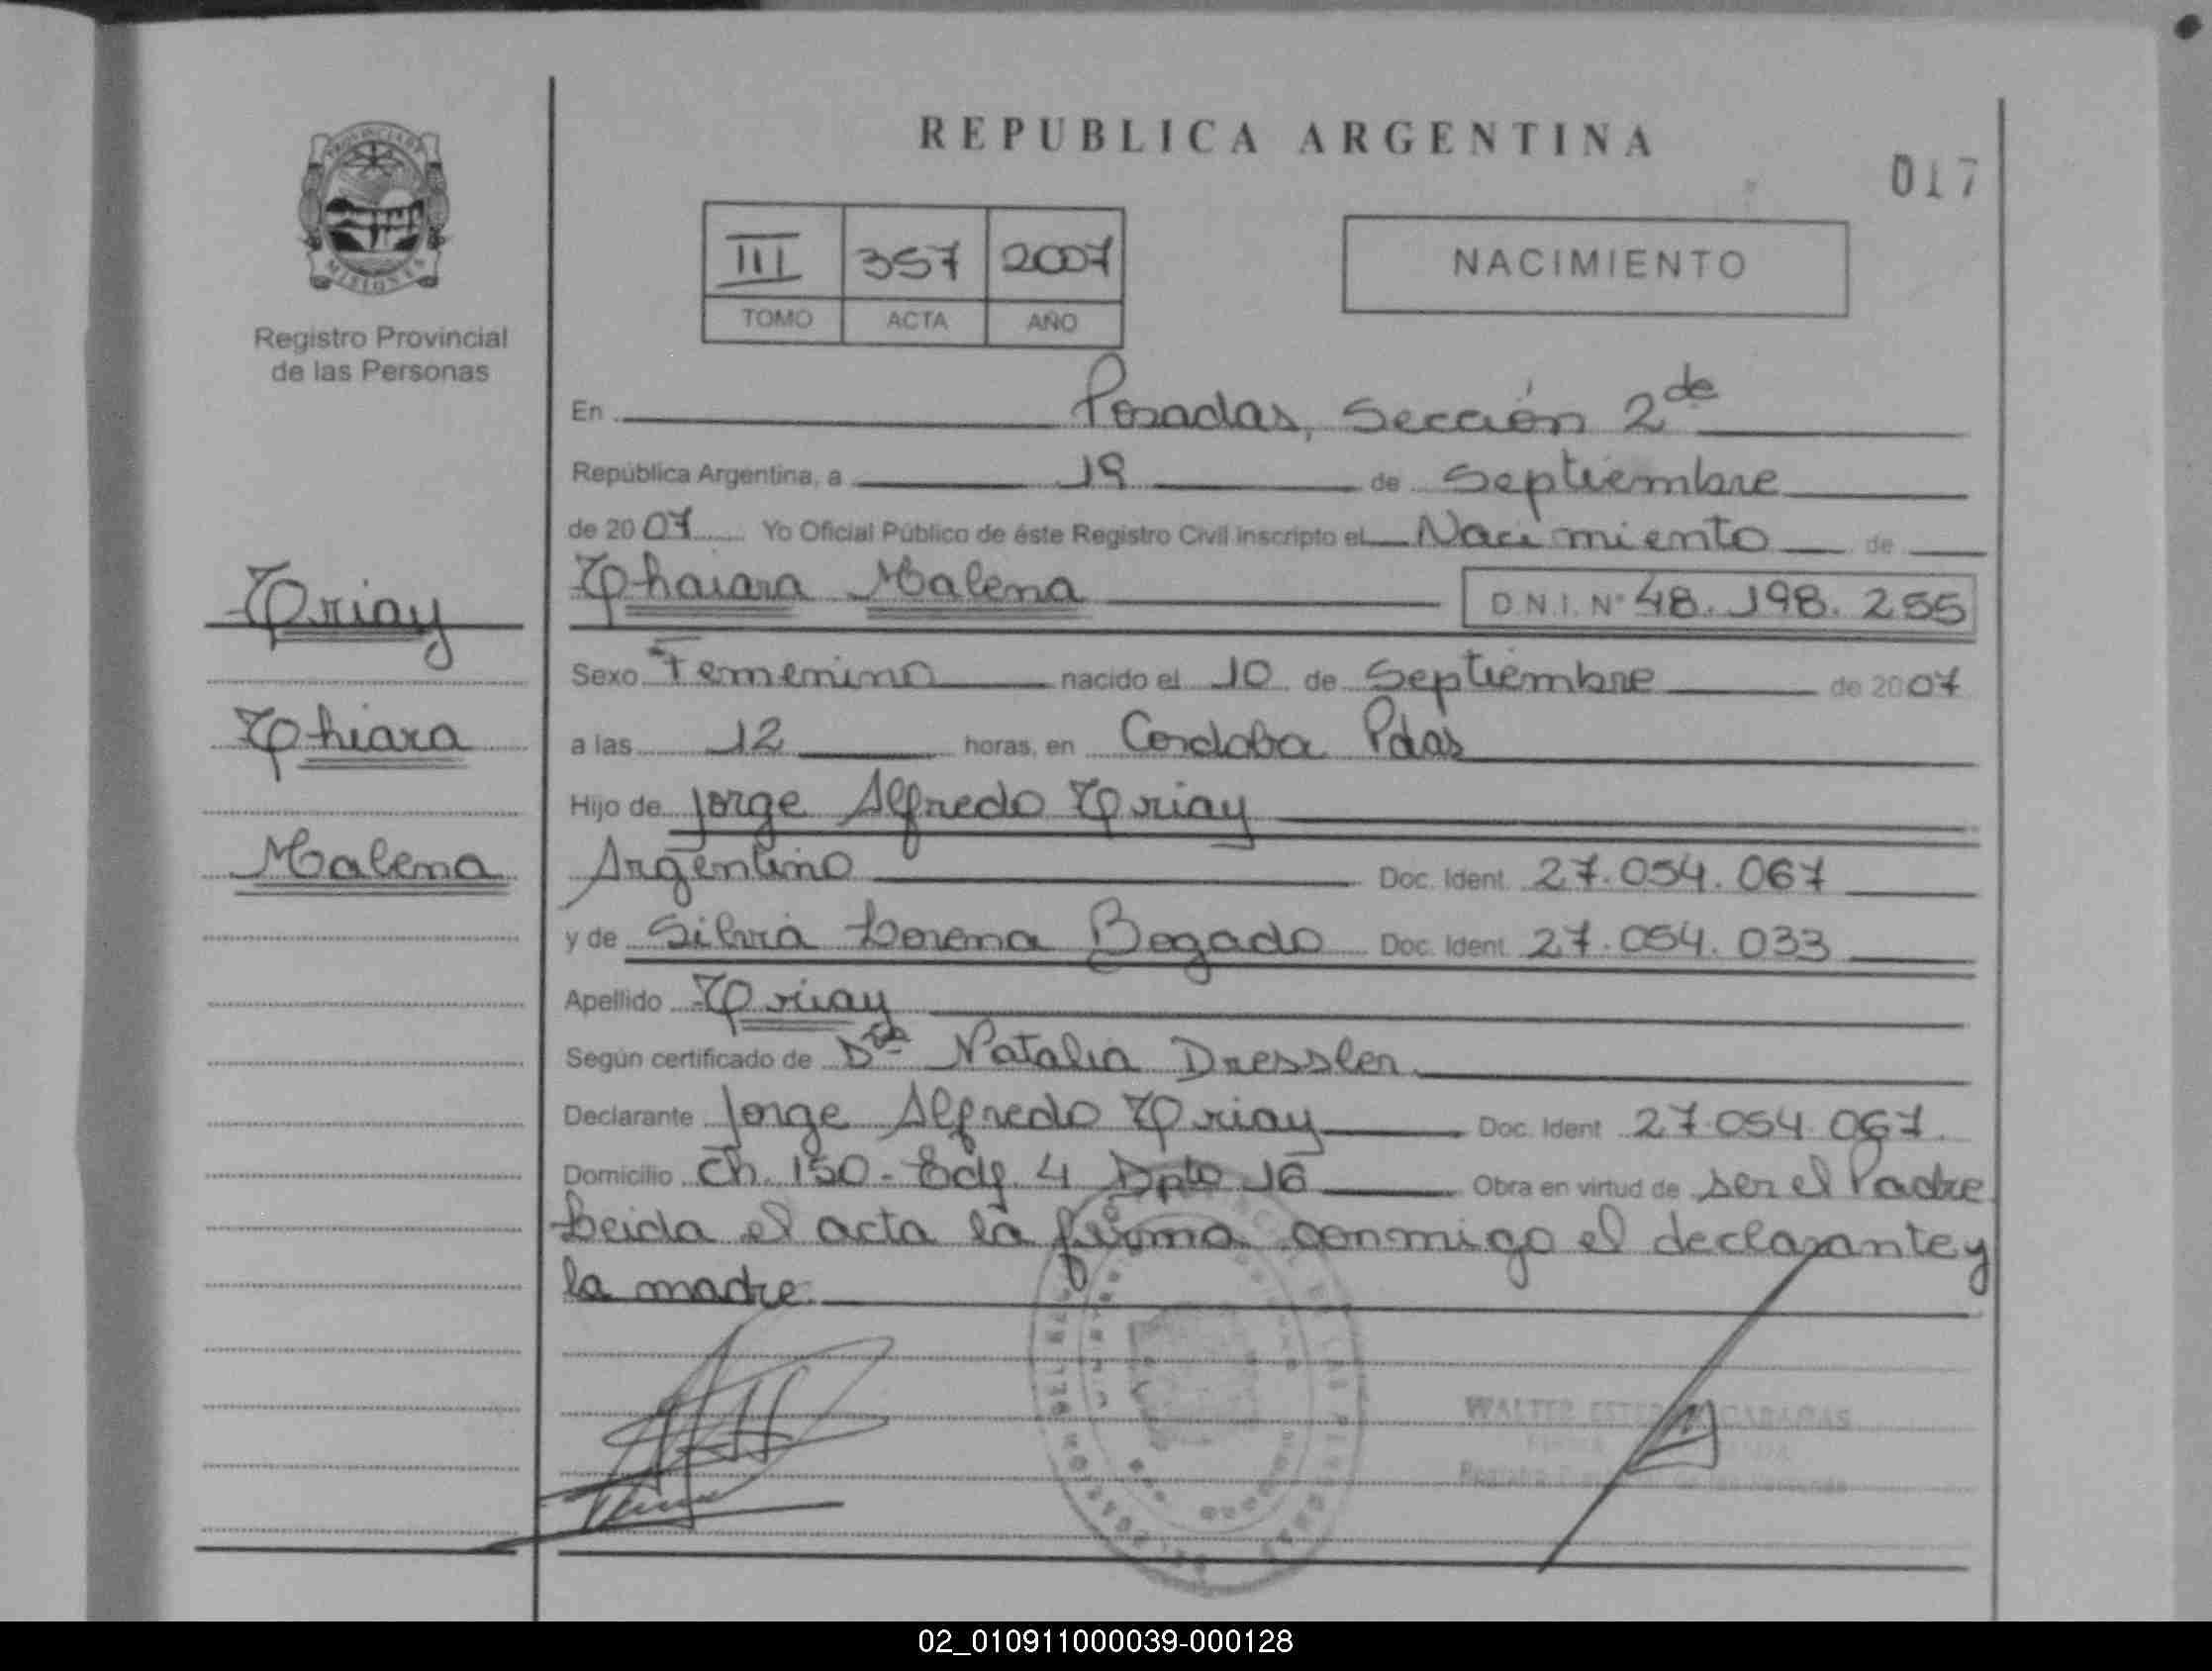 REPUBLICA ARGENTINA
017
PROVINCIA DE
MISIONES
Registro Provincial
de las Personas
III 357 2007
TOMO ACTA AÑO
NACIMIENTO
En Posadas, Sección 2da
República Argentina, a 19 de Septiembre
de 2007 Yo Oficial Público de éste Registro Civil inscripto el Nacimiento de
Thaiara Malena D.N.I. Nº 48.198.255
Sexo Femenino nacido el 10 de Septiembre de 2007
a las 12 horas, en Cordoba Pdas
Hijo de Jorge Alfredo Triay
Argentino Doc. Ident. 27.054.067
y de Silvia Lorena Bogado Doc. Ident. 27.054.033
Apellido Triay
Según certificado de Dra Natalia Dressler
Declarante Jorge Alfredo Triay Doc. Ident 27.054.067.
Domicilio Ch. 150 - Edf. 4 Dpto 16 Obra en virtud de ser el Padre
Leida el acta la firma conmigo el declarante y
la madre.
Triay
Thiara
Malena
WALTER
02_010911000039-000128